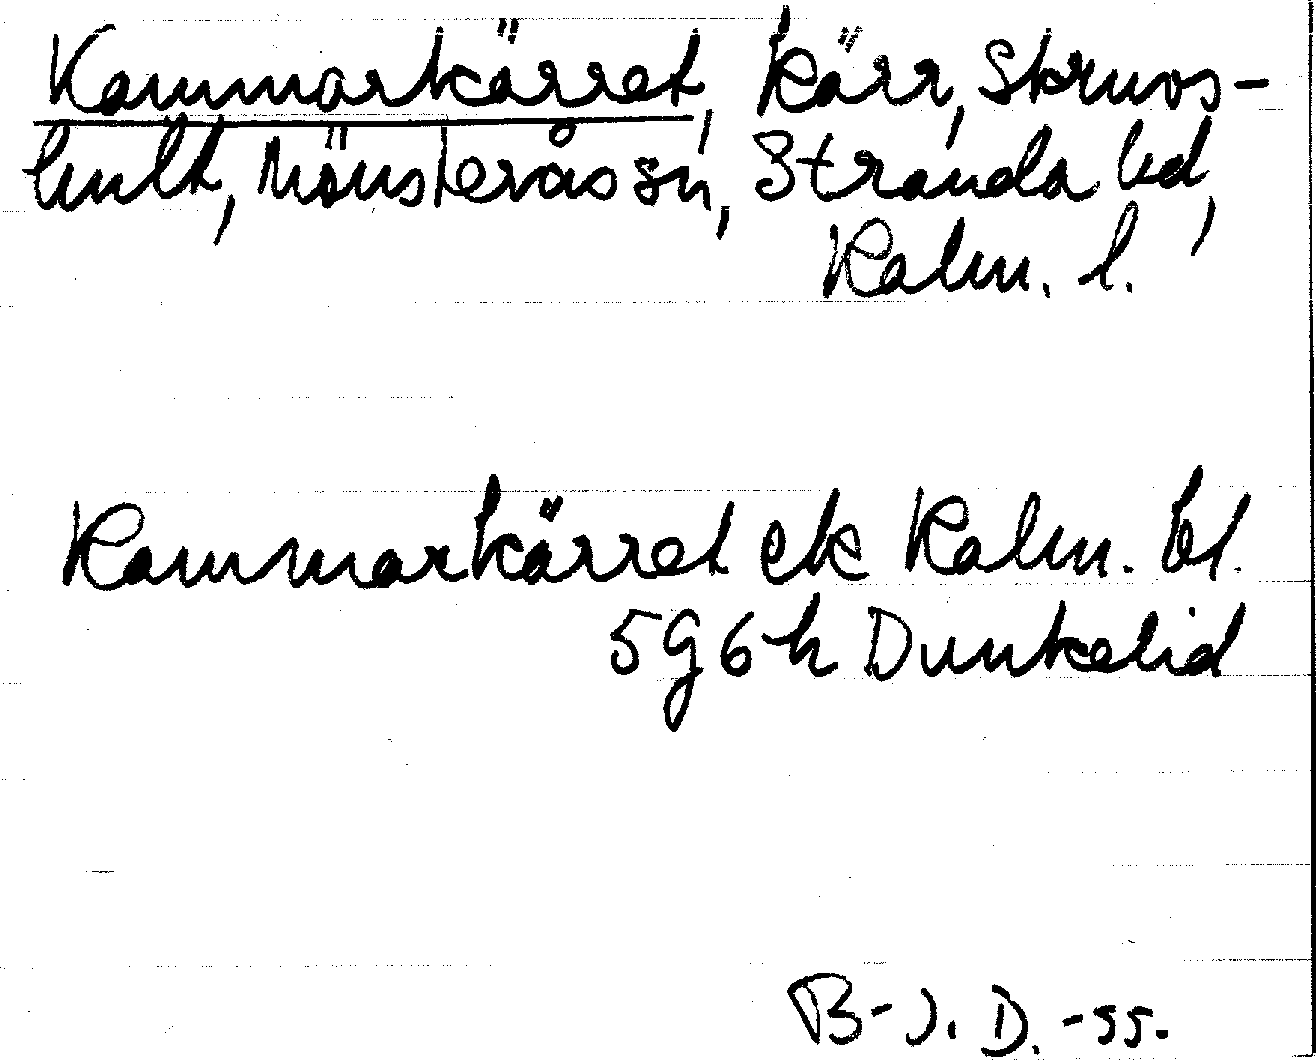 Kammarkärret, kärr, Skruvs-
hult, Mönsterås sn, Stranda hd,
Kalm. l.
Kammarkärret ek Kalm. bl.
5g6h Dunkelid
B-J. D. -55.